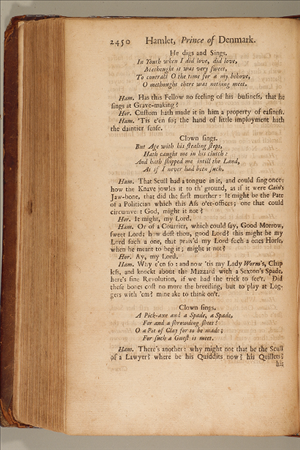 2450 Hamlet, Prince of Denmark.
He digs and Sings.
In Youth when I did love, did love,
Methought it was very sweet,
To contract O the time for a my behove,
O methought there was nothing meet.
Ham. Has this Fellow no feeling of his business, that he
sings at Grave-making?
Hor. Custom hath made it in him a property of easiness.
Ham. 'Tis e'en so; the hand of little imployment hath
the daintier sense.
Clown sings.
But Age with his stealing steps,
Hath caught me in his clutch:
And hath shipped me intill the Land,
As if I never had been such.
Ham. That Scull had a tongue in it, and could sing once:
how the Knave jowles it to th' ground, as if it were Cain's
Jaw-bone, that did the first murther: It might be the Pate
of a Politician which this Ass o'er-offices; one that could
circumvent God, might it not?
Hor. It might, my Lord.
Ham. Or of a Courtier, which could say, Good Morrow,
sweet Lord; how dost thou, good Lord? this might be my
Lord such a one, that prais'd my Lord such a ones Horse,
when he meant to beg it; might it not?
Hor. Ay, my Lord.
Ham. Why e'en so: and now 'tis my Lady Worm's, Chap-
less, and knockt about the Mazard with a Sexton's Spade.
here's fine Revolution, if we had the trick to see't. Did
these bones cost no more the breeding, but to play at Log-
gets with 'em? mine ake to think on't.
Clown sings.
A Pick-axe and a Spade, a Spade,
For and a shrowding sheet!
O a Pit of Clay for to be made;
For such a Guest is meet.
Ham. There's another: why might not that be the Scull
of a Lawyer? where be his Quiddits now? his Quillets?
his